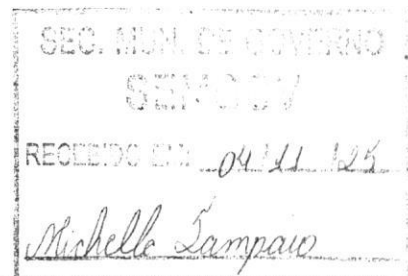 SEC. MUN. DE GOVERNO
SEMGOV
RECEBIDO EM: 04/11/25
Michelle Sampaio